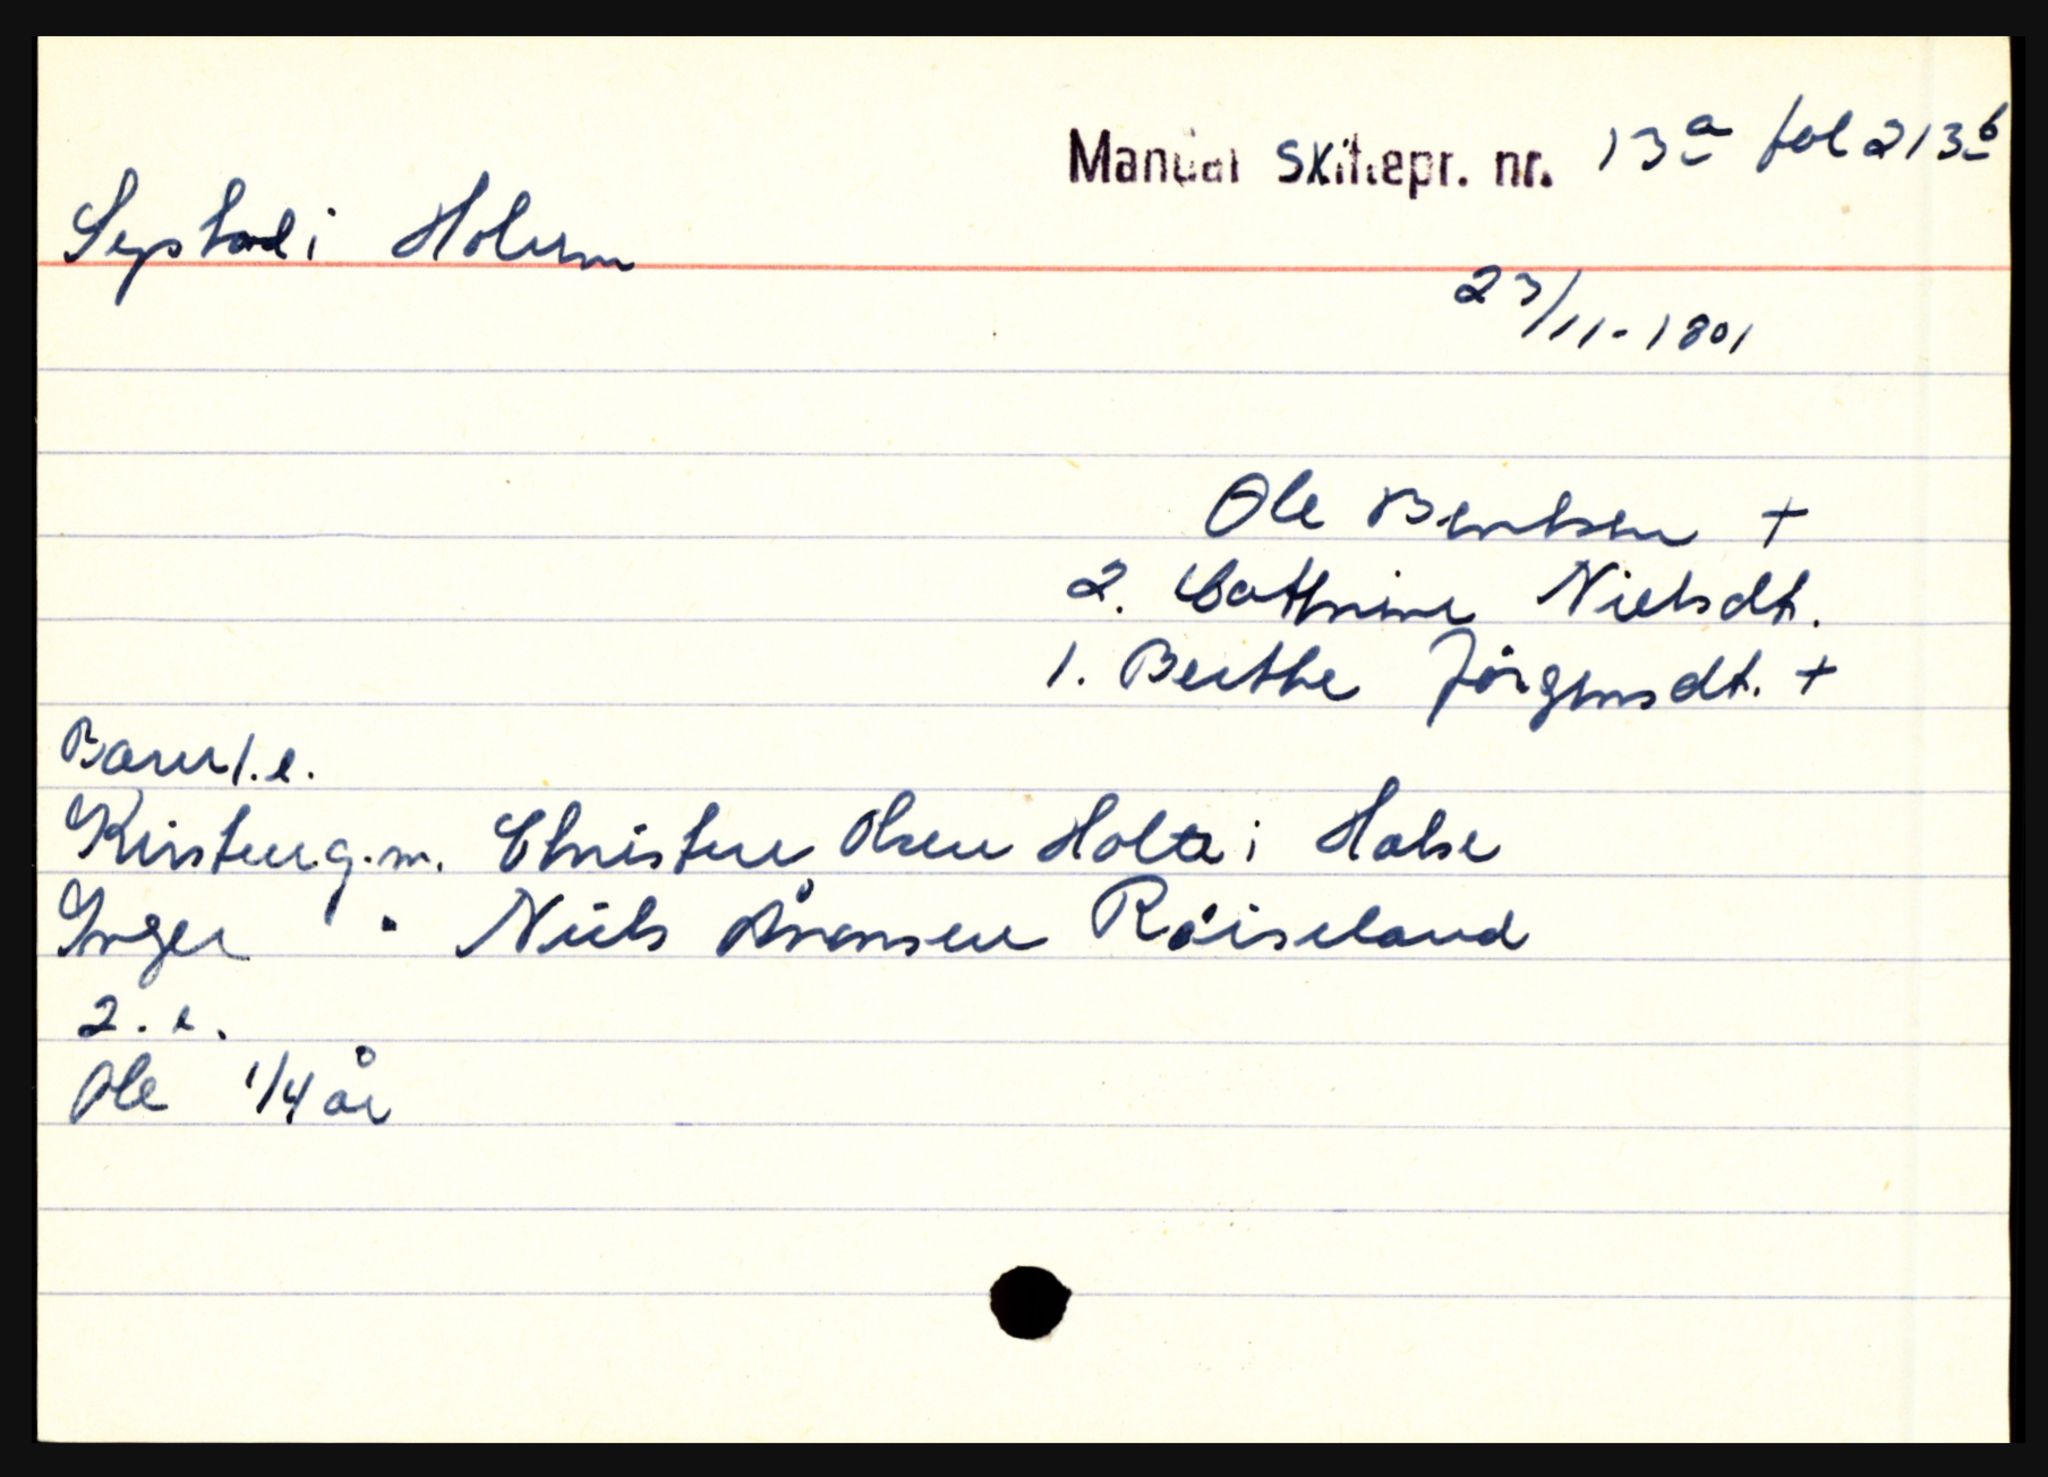 Manual skiftepr. nr. 13a fol 213b
Søgstad i Holum
23/11-1801
Ole Berntsen +
2. Cathrine Nielsdt.
1. Berthe Jörgensdt. +
Barn 1. e.
Kirsten g.m. Christen Olsen Holte i Halse
Inger " Niels Ånonsen Röiseland
2. e.
Ole 1/4 år